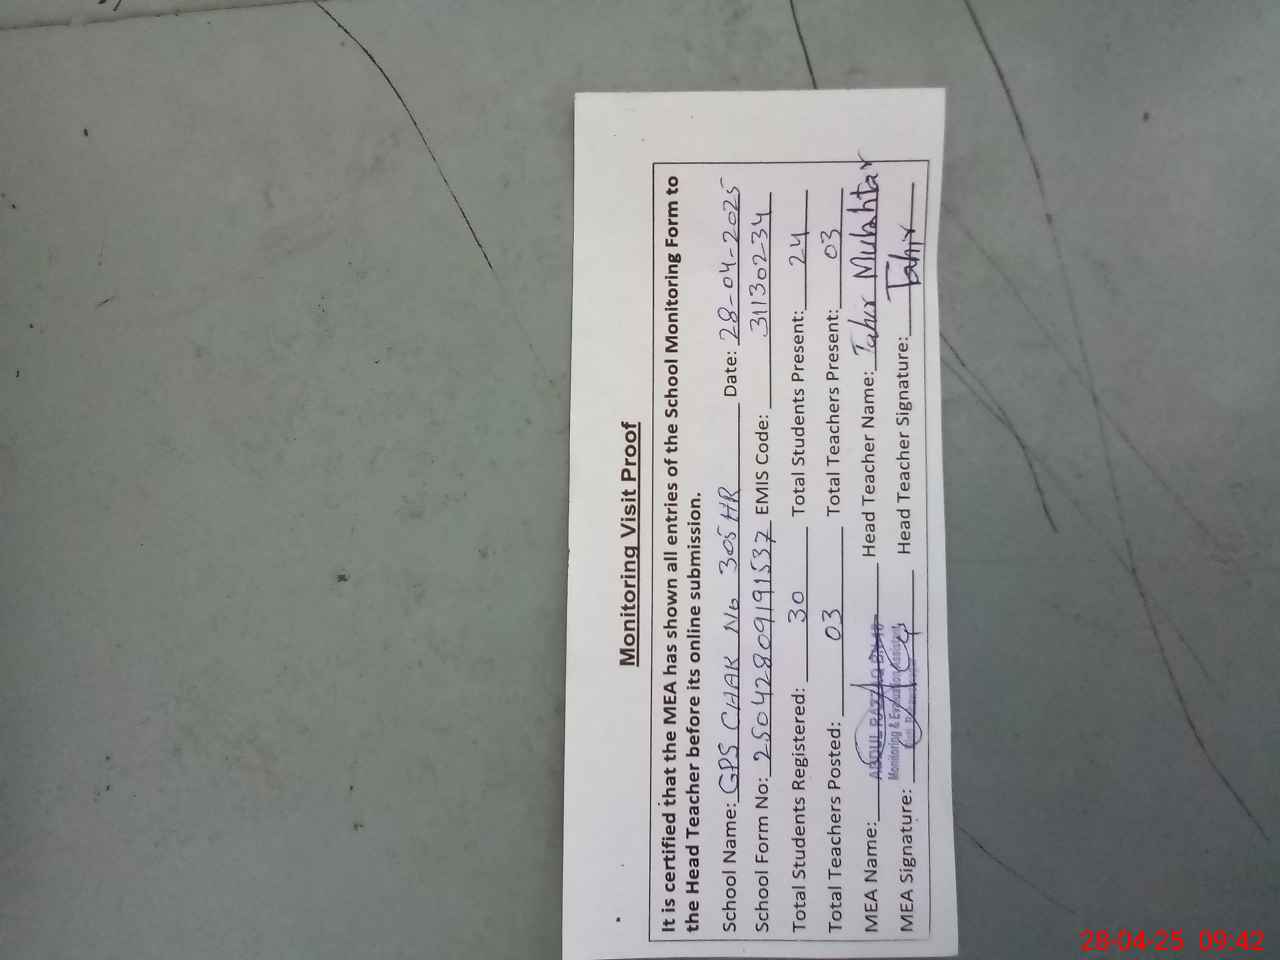 Monitoring Visit Proof
It is certified that the MEA has shown all entries of the School Monitoring Form to
the Head Teacher before its online submission.
School Name: GPS CHAK No 305 HR Date: 28-04-2025
School Form No: 25042809191537 EMIS Code: 31130234
Total Students Registered: 30 Total Students Present: 24
Total Teachers Posted: 03 Total Teachers Present: 03
MEA Name: ABDUL RAZZAQ Head Teacher Name: Tahir Mukhtar
Monitoring & Evaluation Assistant
MEA Signature: Head Teacher Signature: Tahir
28-04-25 09:42